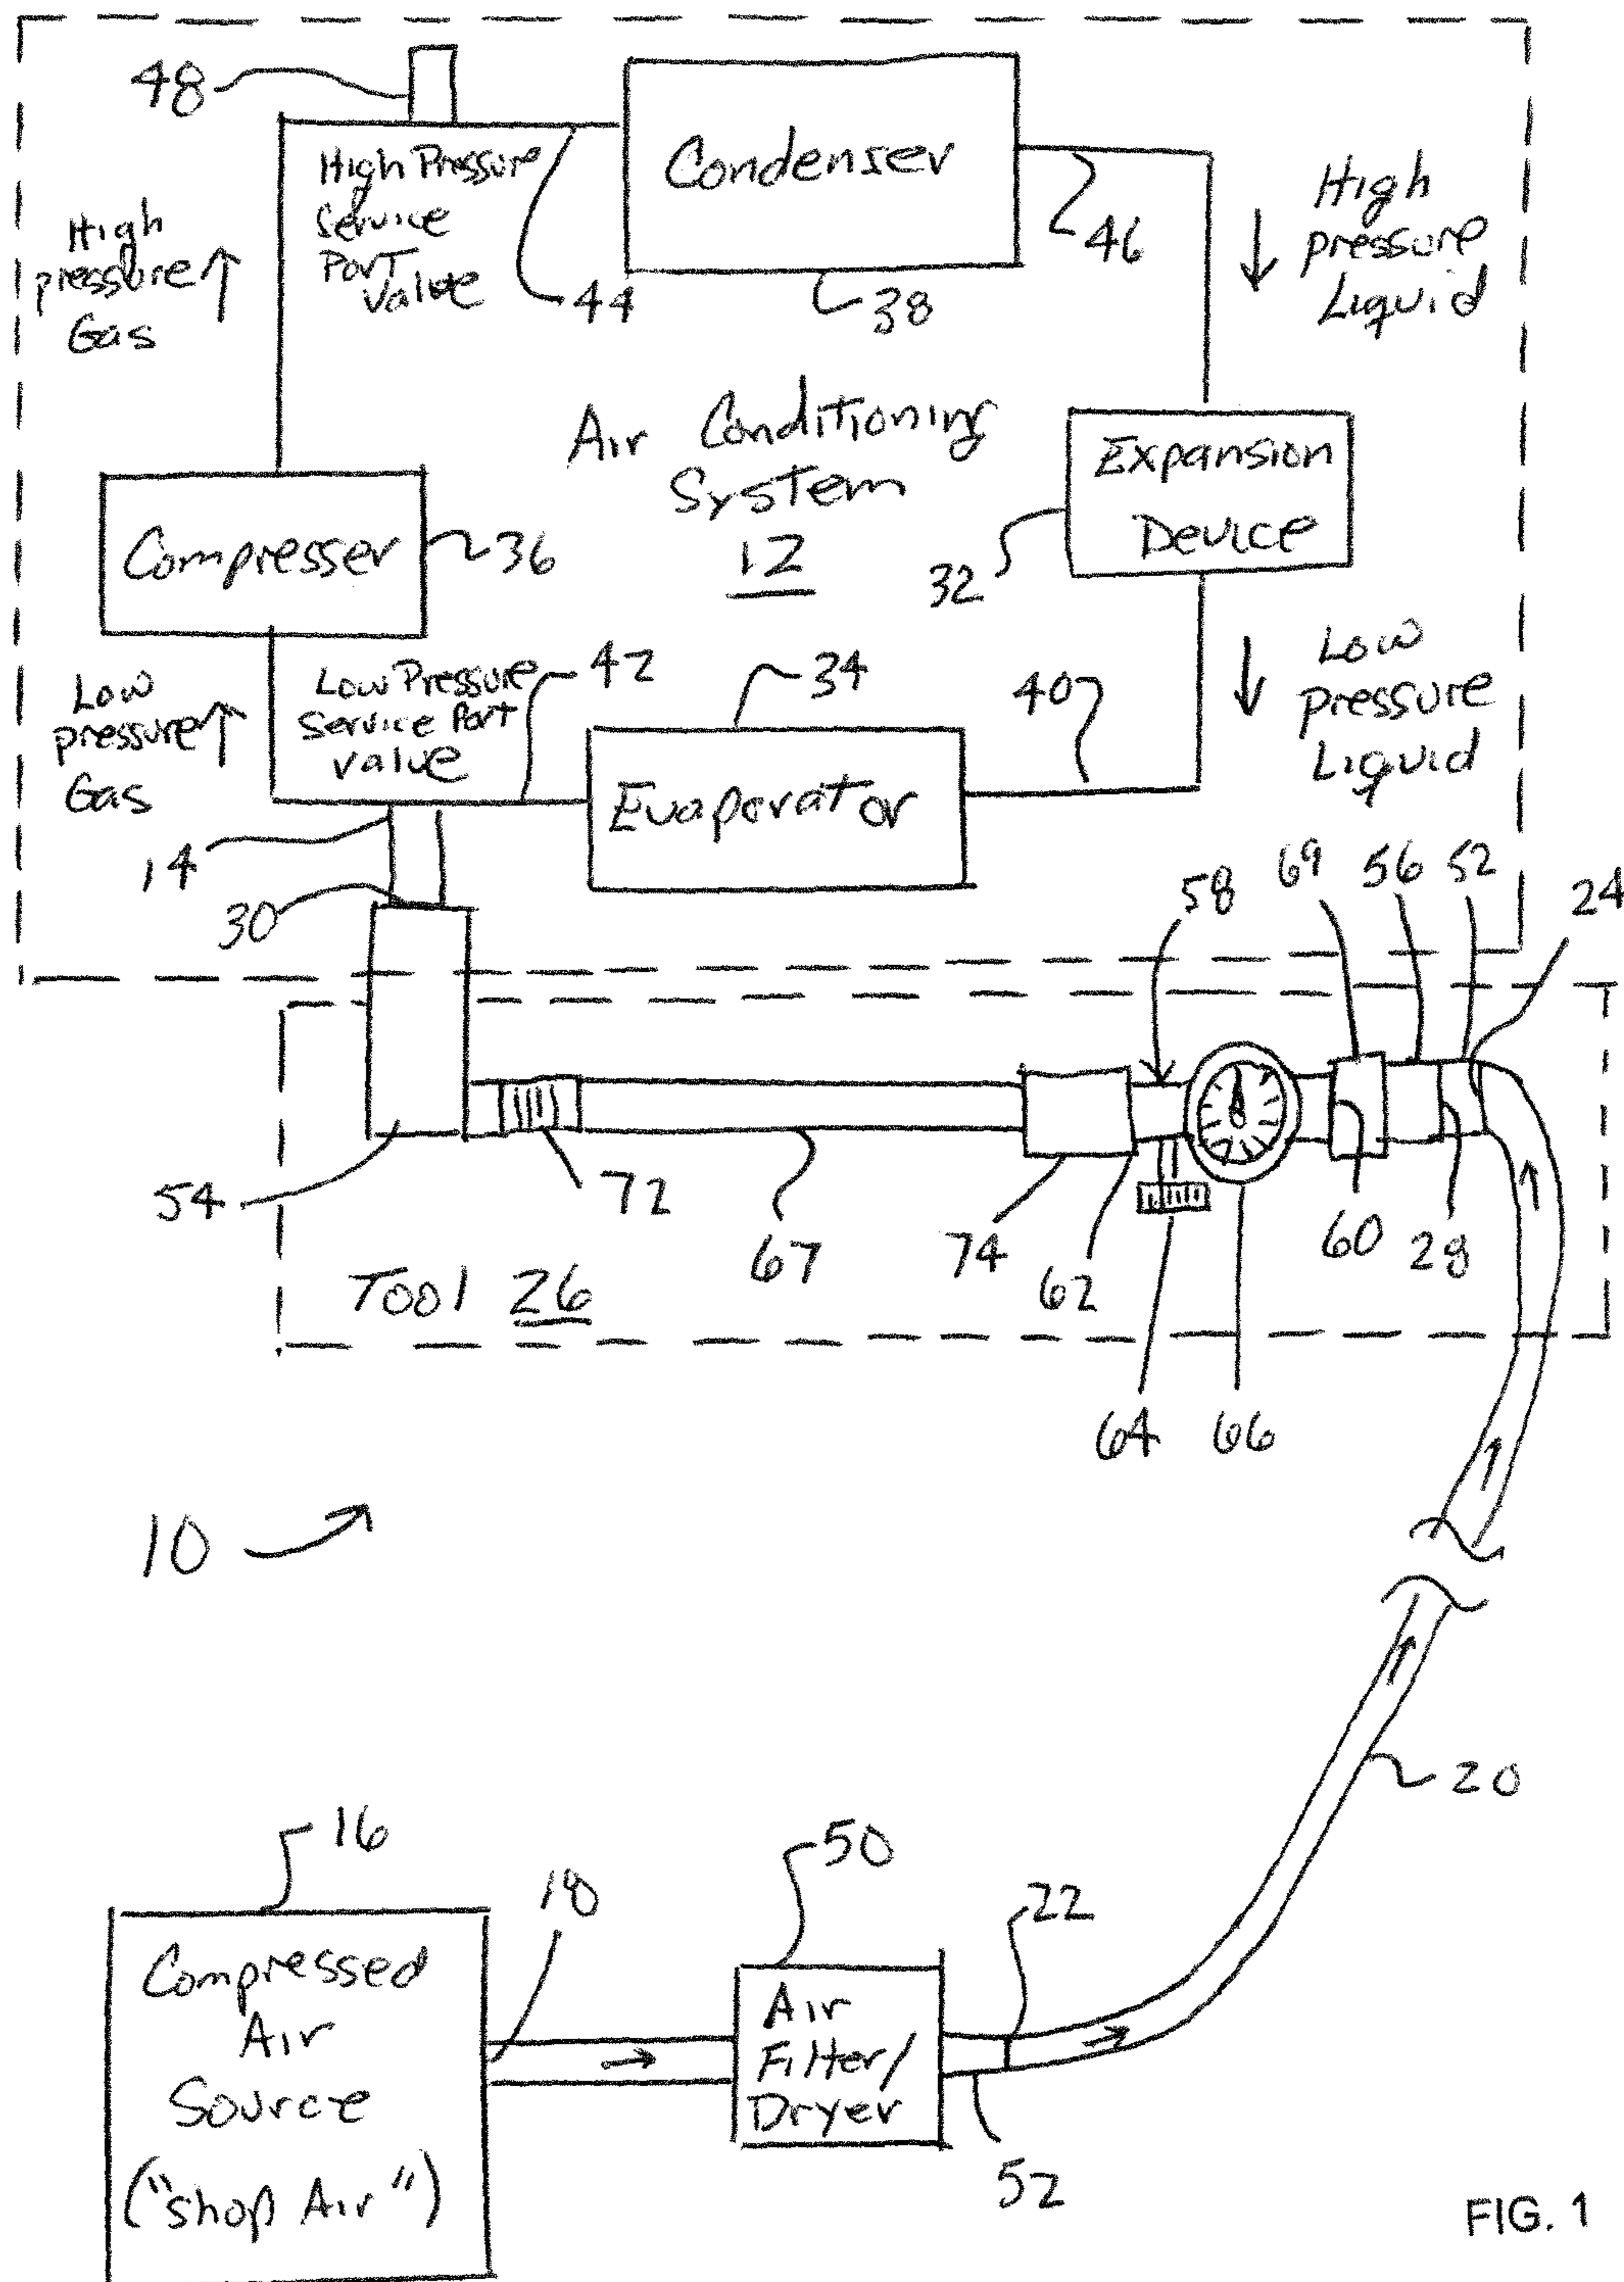 48
High Pressure
Service
Port
Valve
44
Condenser
38
46
High
pressure
Gas
High
pressure
Liquid
Air Conditioning
System
12
Compresser
36
Expansion
Device
32
Low
pressure
Gas
Low Pressure
Service Port
Valve
42
34
40
Low
pressure
Liquid
Evaporator
14
30
58
69
56
52
24
54
72
67
74
62
60
28
Tool 26
64
66
10
20
16
18
50
22
Compressed
Air
Source
("shop Air")
Air
Filter/
Dryer
52
FIG. 1